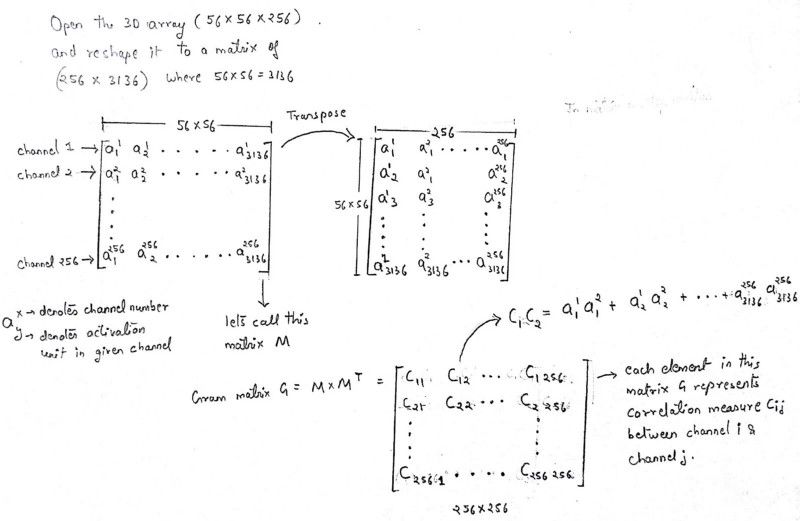 Open the 3D array (56×56×256)
and reshape it to a matrix of
(256 × 3136) where 56×56 = 3136
56×56
Transpose
256
channel 1 → a₁¹ a₂¹ . . . . . a¹₃₁₃₆
channel 2 → a₁² a₂² . . . . . a²₃₁₃₆
channel 256 → a₁²⁵⁶ a₂²⁵⁶ . . . . . a²⁵⁶₃₁₃₆
56×56
a₁¹ a₁² . . . . . a₁²⁵⁶
a₂¹ a₁² a₂²⁵⁶
a₃¹ a₃² a₃²⁵⁶
a¹₃₁₃₆ a²₃₁₃₆ . . . a²⁵⁶₃₁₃₆
a x → denotes channel number
y → denotes activation
unit in given channel
lets call this
matrix M
C₁C₂ = a₁¹a₁² + a₂¹a₂² + . . . + a²⁵⁶₃₁₃₆ a²⁵⁶₃₁₃₆
Gram matrix G = M × Mᵀ =
C₁₁ C₁₂ . . . C₁ ₂₅₆
C₂₁ C₂₂ . . . C₂ ₂₅₆
C₂₅₆ ₁ . . . . C₂₅₆ ₂₅₆
256×256
→ each element in this
matrix G represents
correlation measure Cᵢⱼ
between channel i &
channel j.